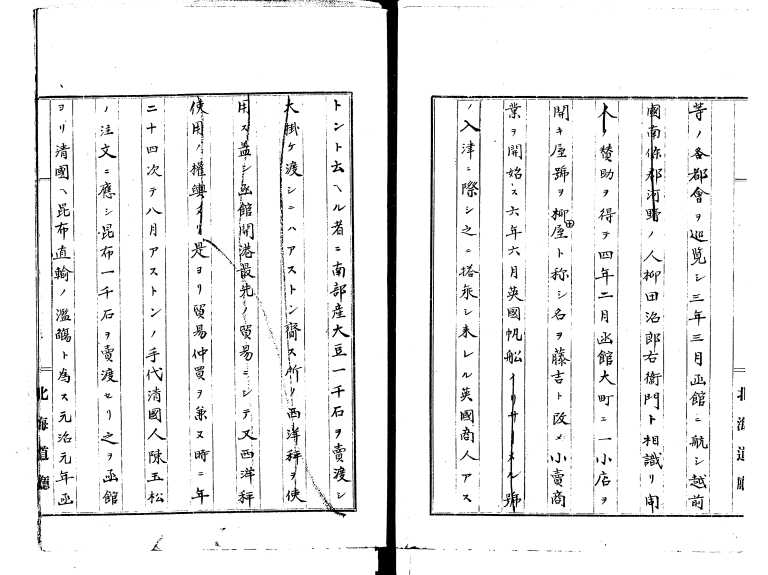 等ノ各都會ヲ巡覧シ三年三月函館ニ航シ越前
國南條郡河野ノ人柳田治郎右衞門ト相識リ同
人ノ賛助ヲ得テ四年二月函館大町ニ一小店ヲ
開キ屋號ヲ柳屋ト称シ名ヲ藤吉ト改メ小賣商
業ヲ開始ス六年六月英國帆船イリサーメル號
ノ入津ニ際シ之ニ搭乗シ来レル英國商人アス
北海道廳
トント云ヘル者ニ南部産大豆一千石ヲ賣渡シ
大掛ケ渡シニハアストン齎ス所ノ西洋秤ヲ使
用ス蓋シ函館開港最先ノ貿易ニシテ又西洋秤
使用ノ權輿ナリ是ヨリ貿易仲買ヲ兼又時ニ年
二十四次テ八月アストンノ手代清國人陳玉松
ノ注文ニ應シ昆布一千石ヲ賣渡セリ之ヲ函館
ヨリ清國ヘ昆布直輸ノ濫觴ト為ス元治元年函
北海道廳